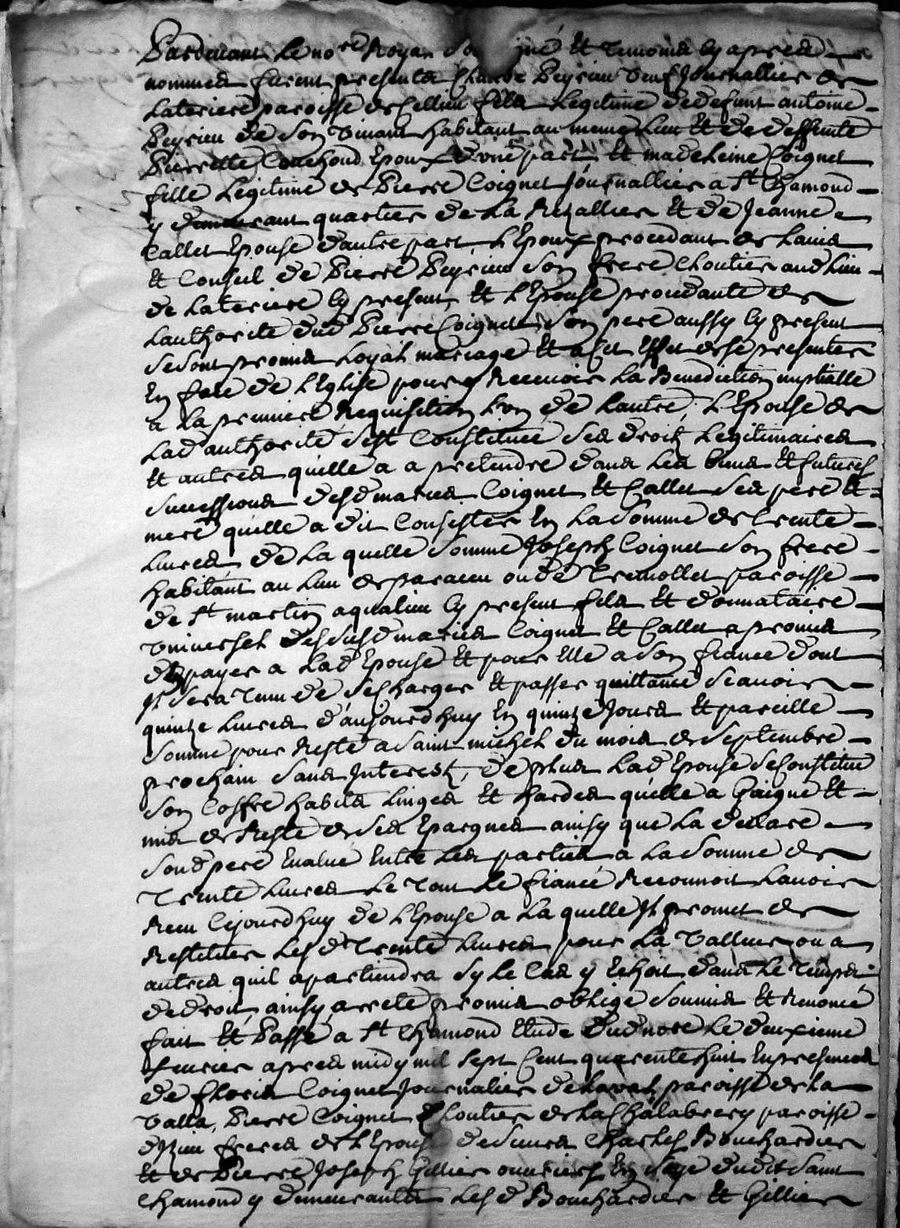 Pardevant le no.re Royal Sousigné et temoins cy apres
nommes furent presents Claude Peyrieu veuf Journallier de
Lateriere paroisse de Cellieu fils Legitime de defunt antoine
Peyrieu de son vivant habitant au meme lieu et de deffunte
Pierrette Couchoud Epoux d'une part et madeleine Coignet
fille Legitime de Pierre Coignet Journallier a St Chamond
y demeurant quartier de La Rivallier et de Jeanne
Callet Epouse d'autre part L'Epoux procedant de Lavis
et Conseil de Pierre Peyrieu son frere Cloutier aud lieu
de Lateriere cy present et L'Epouse procedante de
Lauthorité dud Pierre Coignet son pere aussy cy present
se sont promis Loyal mariage et a cet effet de se presenter
En face de L'Eglise pour y Recevoir La Benediction nuptialle
a La premiere Requisition L'un de Lautre, L'Epouse de
Lad authorité s'est Constituée ses droits Legitimaires
et autres qu'elle a a pretendre dans les biens et futures
successions desd maries Coignet et Callet ses pere et
mere quelle a dit Consister En La somme de trente
Livres de La quelle somme Joseph Coignet son frere
habitant au lieu de paracu ou de Tremollet paroisse
de St martin aqualieu cy present fils et donnataire
vniversel desdsd maries Coignet et Callet a promis
de payer a Lad Epouse et pour Elle a son fiancé dont
Jl sera tenu de se charger et passer quittance scavoir
quinze Livres d'aujourdhuy En quinze Jours et pareille
somme pour Reste a saint michel du mois de septembre
prochain sans Interest, de plus Lad Epouse se Constitue
son Coffre habits Linges et hardes quelle a Gaigné et
mis de Reste de ses Epargnes ainsy que La declaré
sond pere Evalué Entre Les parties a La somme de
Trente Livres Le tout Le fiancé Reconnoit Lavoir
Receu Cejourdhuy de L'Epouse a La quelle Jl promet de
Restituer Les d trente Livres pour La valleur ou a
autres quil apartiendra sy Le Cas y Echoit dans Le temps
de droit ainsy arreté promis obligé soumis et Renoncé
fait et Passé a St Chamond Etude dud nore Le deuxieme
fevrier apres midy mil sept Cent quarente huit En presences
de Floris Coignet Journalier de Laval paroisse de La
Valla, Pierre Coignet Cloutier de La Chalabrery paroisse
d'Izieu freres de L'Epouse de sieurs Charles Bouchardier
et de Pierre Joseph Gillier ouvriers En soye dudit saint
Chamond y demeurants Les d Bouchardier et Gillier